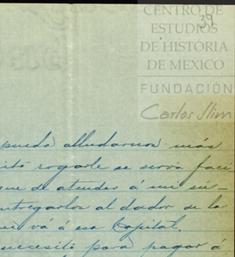 CENTRO DE
39
ESTUDIOS
DE HISTORIA
DE MEXICO
FUNDACIÓN
Carlos Slim
pueda alludarnos más
rogarle se sirva faci
que de atender á un su-
entregarlos al dador de la
que vá á esa Capital.
necesito para pagar á